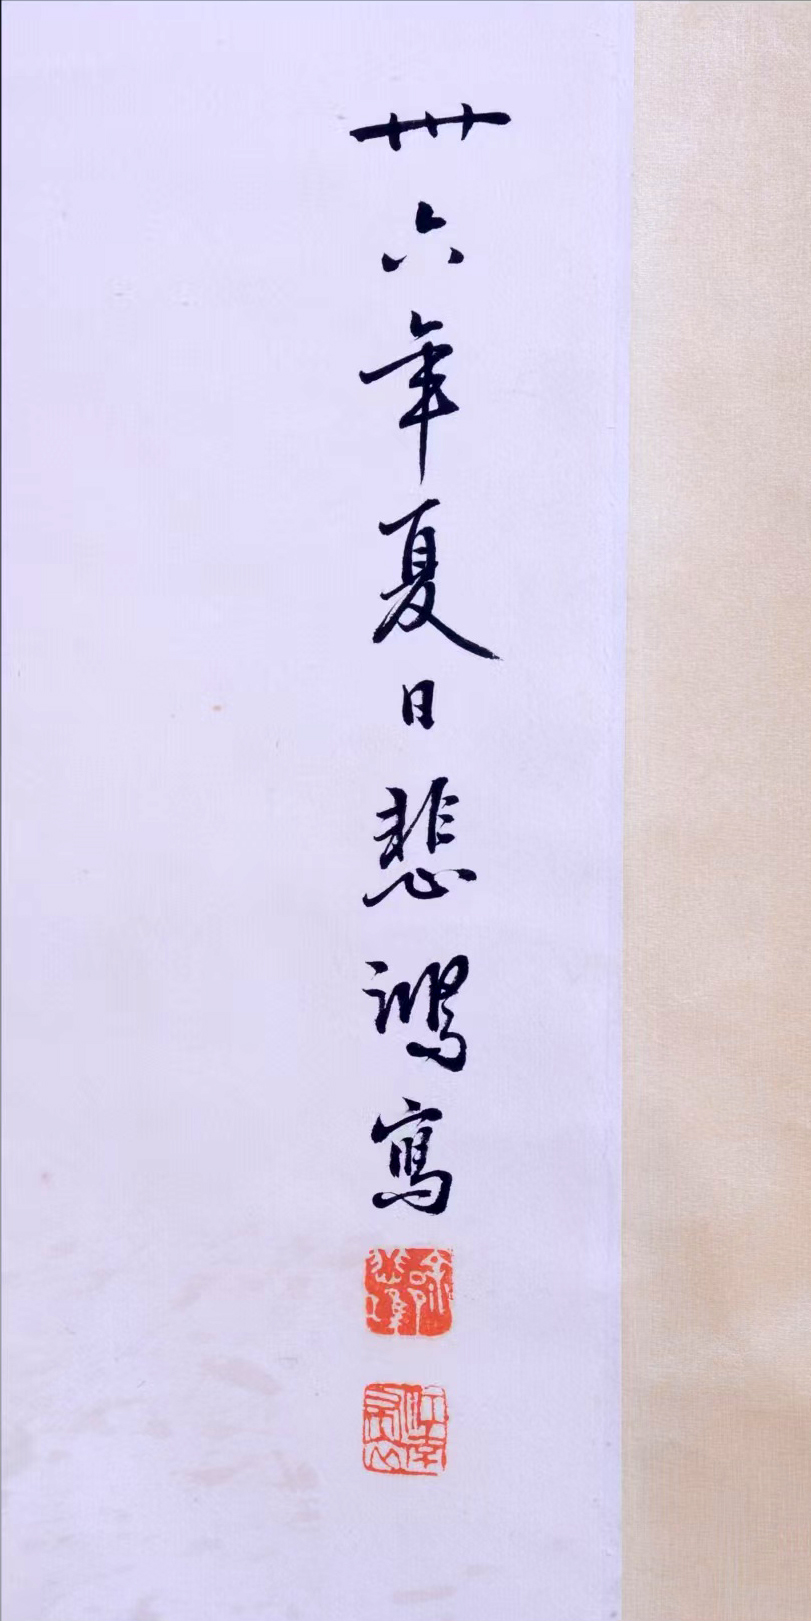 卅六年夏日悲鴻寫